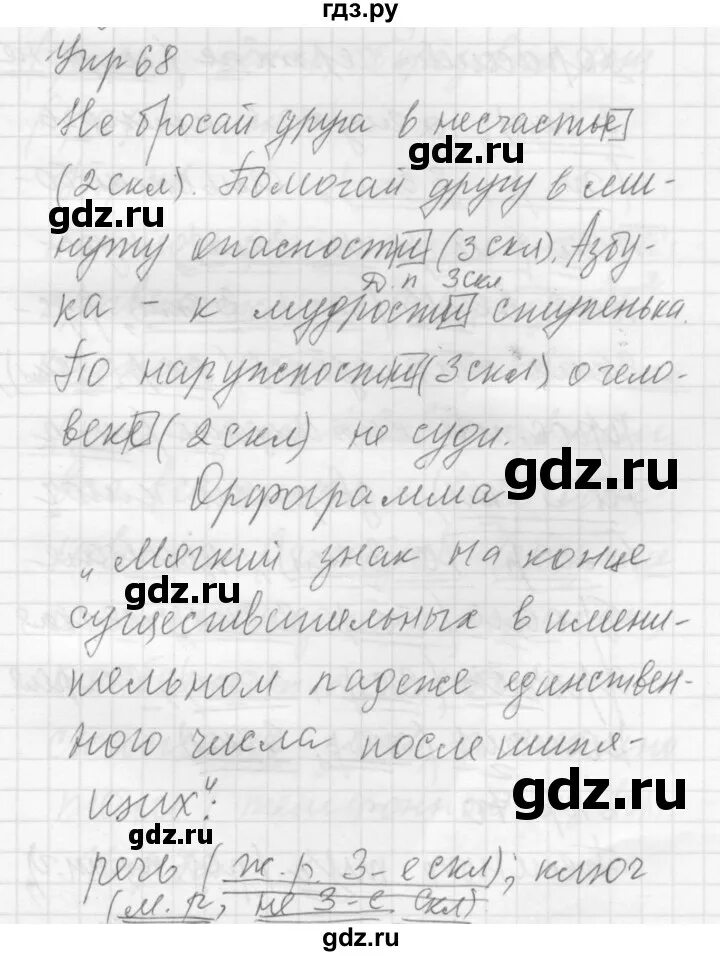 гдз.ру
Упр 68
Не бросай друга в несчастье
gdz.ru
(2 скл). Помогай другу в ми-
gdz.ru
нуту опасности (3 скл). Азбу-
Д. п 3 скл
ка – к мудрости ступенька.
По наружности (3 скл) о чело-
веке (2 скл) не суди.
gdz.ru
Орфограмма
„Мягкий знак на конце
gdz.ru
существительных в имени-
тельном падеже единствен-
ного числа после шипя-
gdz.ru
щих“:
gdz.ru
речь (ж. р. 3-е скл); ключ
(м. р, не 3-е скл)
gdz.ru
gdz.ru